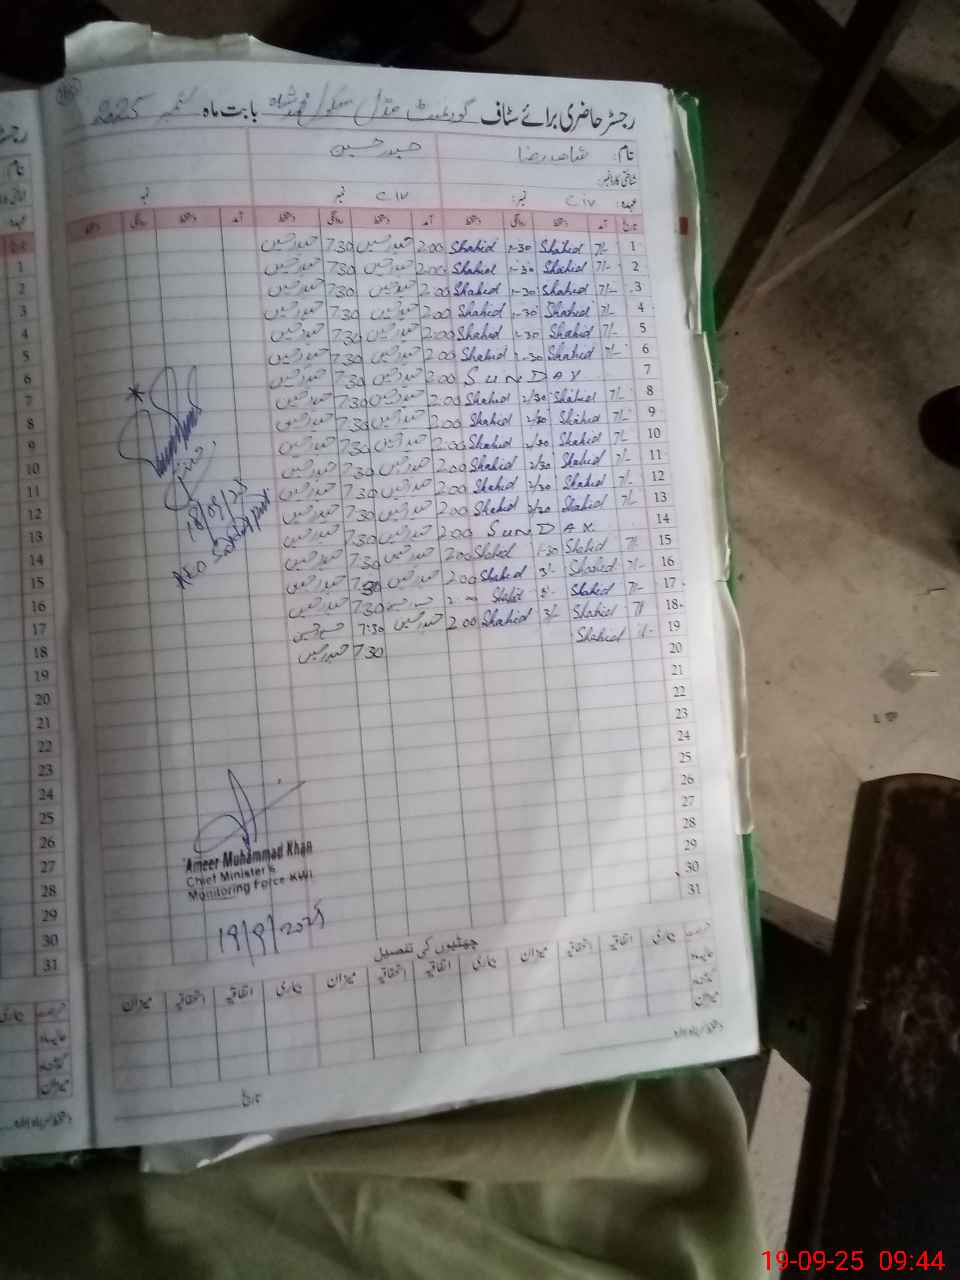 رجسٹر حاضری برائے سٹاف گورنمنٹ مڈل سکول محمد شاہ بابت ماہ ستمبر 2025
نام: شاھد رضا حیدر حسین
شناختی کارڈ نمبر:
عہدہ: C.IV نمبر: C.IV نمبر نمبر
تاریخ آمد دستخط روانگی دستخط آمد دستخط روانگی دستخط آمد دستخط روانگی دستخط
1 7/- Shahid 1-30 Shahid 2.00 حیدر حسین 7.30 حیدر حسین
2 7/- Shahid 1-30 Shahid 2.00 حیدر حسین 7.30 حیدر حسین
3 7/- Shahid 1-30 Shahid 2.00 حیدر حسین 7.30 حیدر حسین
4 7/- Shahid 1-30 Shahid 2.00 حیدر حسین 7.30 حیدر حسین
5 7/- Shahid 1-30 Shahid 2.00 حیدر حسین 7.30 حیدر حسین
6 7/- Shahid 1-30 Shahid 2.00 حیدر حسین 7.30 حیدر حسین
7 SUNDAY 2.00 حیدر حسین 7.30 حیدر حسین
8 7/- Shahid 2/30 Shahid 2.00 حیدر حسین 7.30 حیدر حسین
9 7/- Shahid 2/30 Shahid 2.00 حیدر حسین 7.30 حیدر حسین
10 7/- Shahid 2/30 Shahid 2.00 حیدر حسین 7.30 حیدر حسین
11 7/- Shahid 2/30 Shahid 2.00 حیدر حسین 7.30 حیدر حسین
12 7/- Shahid 2/30 Shahid 2.00 حیدر حسین 7.30 حیدر حسین
13 7/- Shahid 2/30 Shahid 2.00 حیدر حسین 7.30 حیدر حسین
14 SUNDAY 2.00 حیدر حسین 7.30 حیدر حسین
15 7/- Shahid 1-30 Shahid 2.00 حیدر حسین 7.30 حیدر حسین
16 7/- Shahid 3/- Shahid 2.00 حیدر حسین 7.30 حیدر حسین
17 7/- Shahid 3/- Shahid 2.00 حیدر حسین 7.30 حیدر حسین
18 7/ Shahid 3/- Shahid 2.00 حیدر حسین 7.30 حیدر حسین
19 7/- Shahid 7.30 حیدر حسین
20
21
22
23
24
25
26
27
28
29
30
31
18/09/25
Ameer Muhammad Khan
Chief Minister's
Monitoring Force KWI
19/9/2025
چھٹیوں کی تفصیل
بیماری اتفاقیہ استحقاقیہ میزان بیماری اتفاقیہ استحقاقیہ میزان بیماری اتفاقیہ استحقاقیہ میزان
سابقہ
میزان
تاریخ
1
2
3
4
5
6
7
8
9
10
11
12
13
14
15
16
17
18
19
20
21
22
23
24
25
26
27
28
29
30
31
19-09-25 09:44